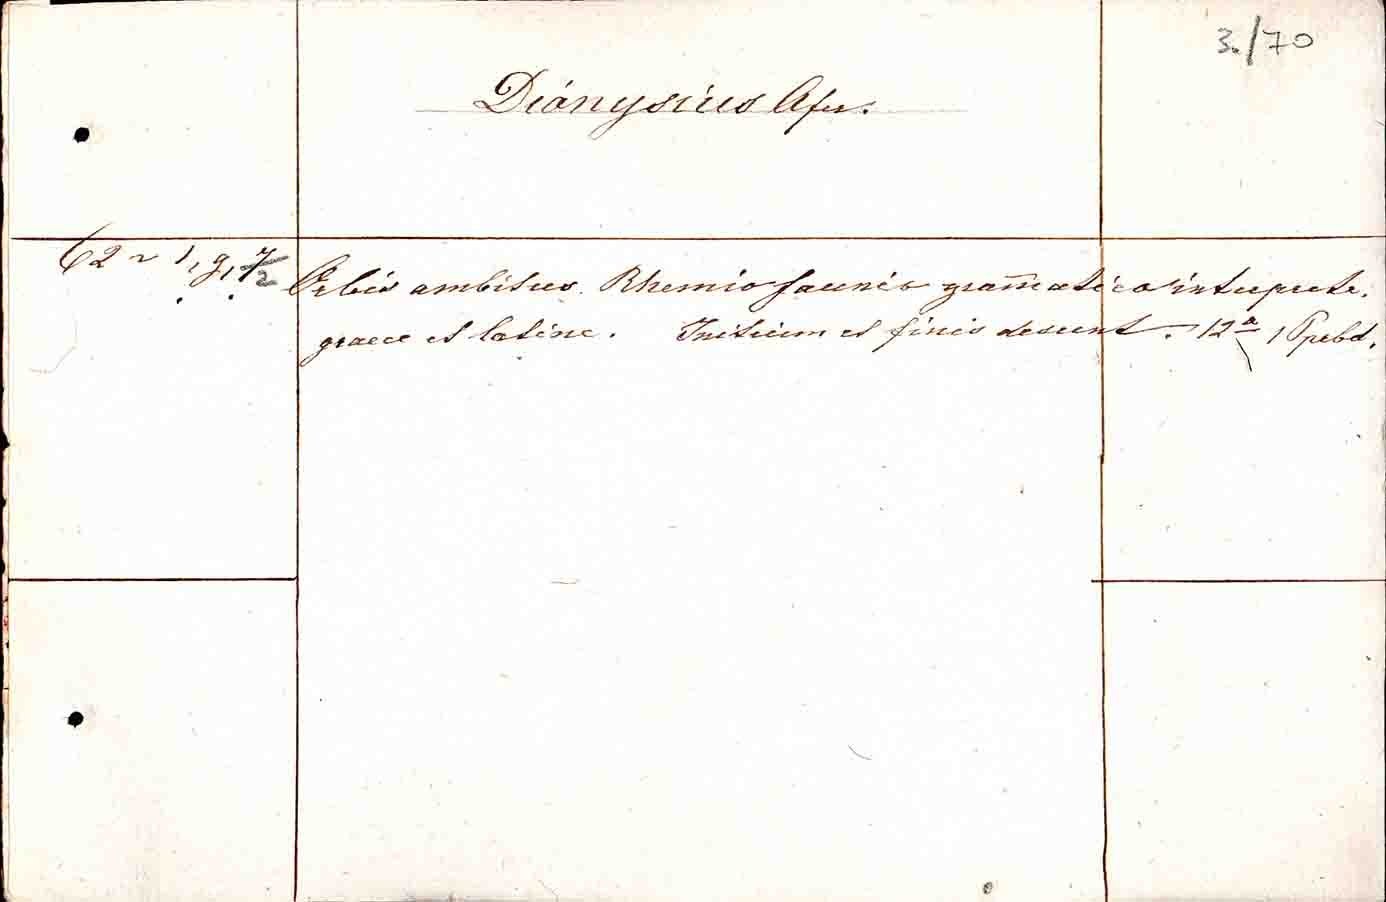 3./70
Dionysius Afer.
62 ~ 1, g, 7/2
Orbis ambitus. Rhemio fannio gram̄atico interprete.
graece et latine. Initium et finis desunt. 12a 1 Ppebd.